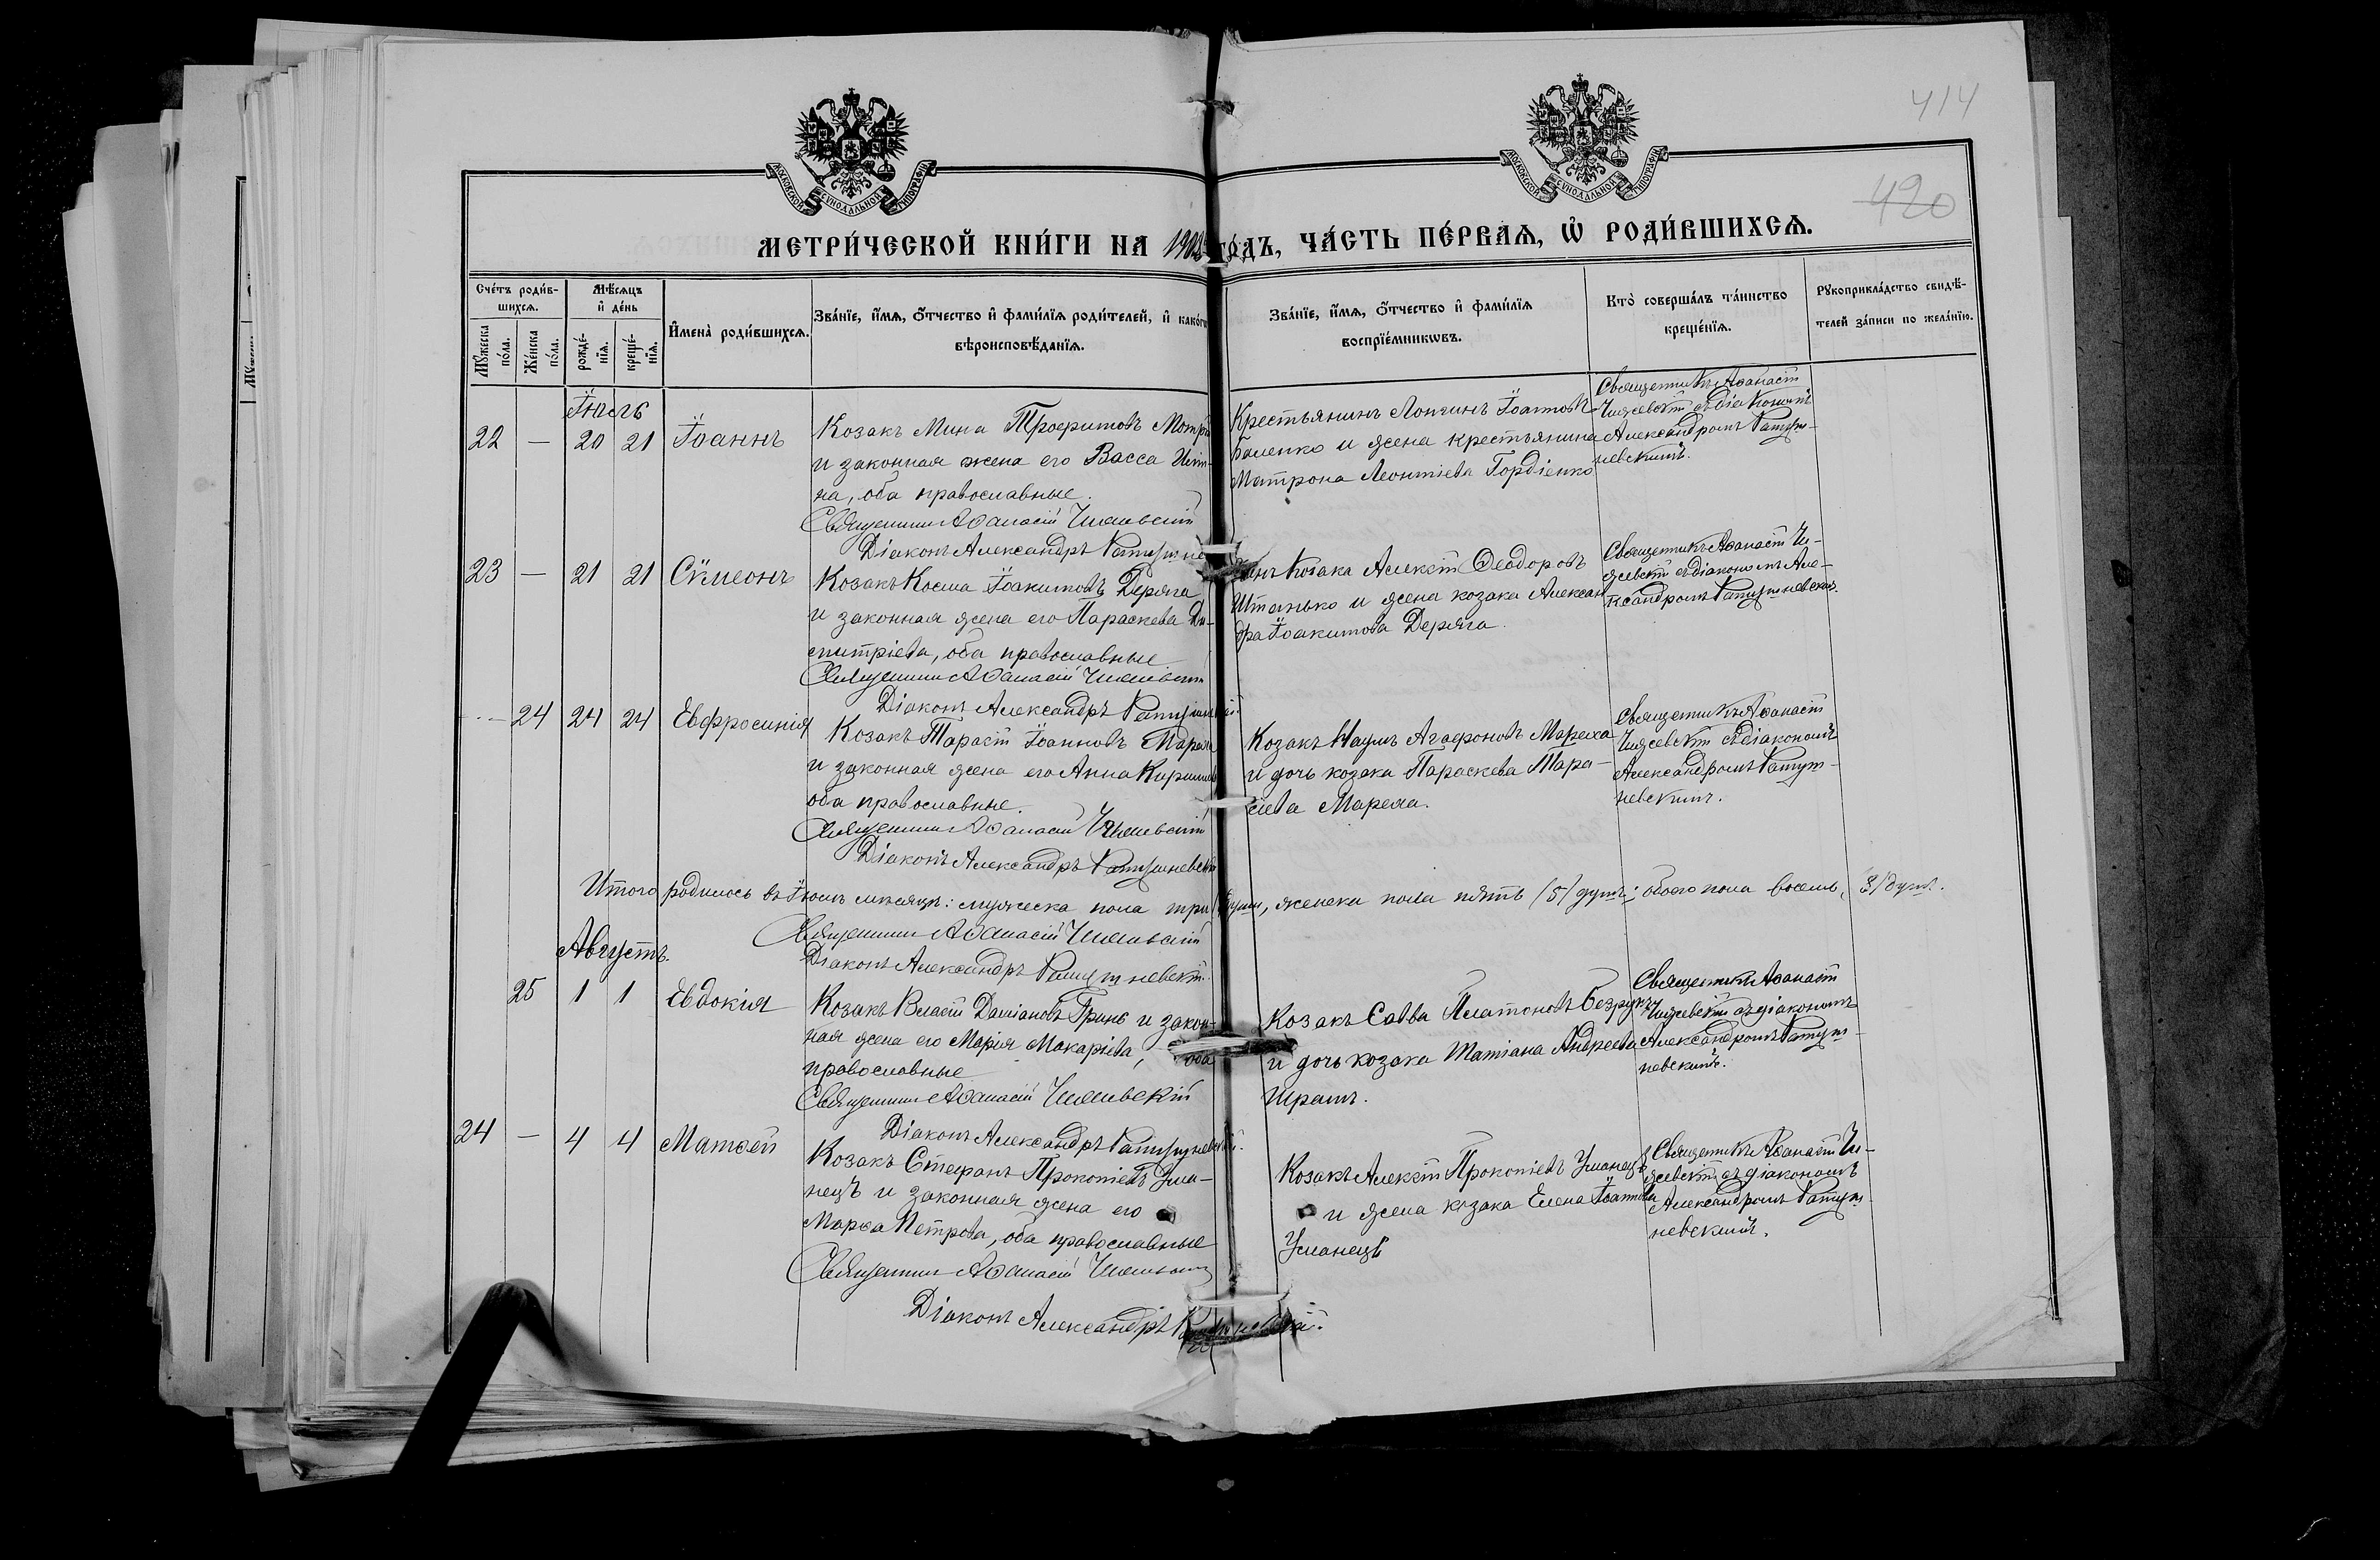 414
420
МОСКОВСКОЙ СѴНОДАЛЬНОЙ ТИПОГРАФІИ
МОСКОВСКОЙ СѴНОДАЛЬНОЙ ТИПОГРАФІИ
МЕТРИ́ЧЕСКОЙ КНИ́ГИ НА 1902 ГО́ДЪ, ЧА́СТЬ ПЕ́РВАѦ, Ѡ҆ РОДИ́ВШИХСѦ.
Сче́тъ роди́в-
шихсѧ.
Мꙋ́жеска по́ла.
Же́нска по́ла.
Мѣ́сѧцъ
и҆ де́нь
рожде́-
нїѧ.
креще́-
нїѧ.
И҆мена̀ роди́вшихсѧ.
Зва́нїе, и҆́мѧ, ѻ҆́тчество и҆ фами́лїѧ роди́телей, и҆ како́гѡ
вѣроисповѣ́данїѧ.
Зва́нїе, и҆́мѧ, ѻ҆́тчество и҆ фами́лїѧ
воспрїе́мникѡвъ.
Кто̀ соверша́лъ та́инство
креще́нїѧ.
Рꙋкоприкла́дство свидѣ́-
телей за́писи по жела́нїю.
Іюль
22 — 20 21 Іоаннъ
Козакъ Мина Трофимовъ
и законная жена его Васса
на, оба православные.
Священник Аѳанасій
Діаконъ Александръ
Крестьянинъ Лонгинъ Іоанновъ
и жена крестьянина
Матрона Леонтіева Гордіенко
Священникъ Аѳанасій
съ діакономъ
Александромъ Ратуш-
невскимъ.
23 — 21 21 Сѵмеонъ
Козакъ Косма Іоакимовъ Деряга
и законная жена его Параскева Ди-
митріева, оба православные
Священник Аѳанасій
Діаконъ Александръ
козака Алексій Ѳеодоровъ
Штанько и жена козака Алексан
дра Іоакимова Деряга.
Священникъ Аѳанасій
съ діакономъ Але-
ксандромъ Ратушневским.
— 24 24 24 Евфросинія
Козакъ Тарасій Іоанновъ
и законная жена его Анна
оба православные.
Священник Аѳанасій
Діаконъ Александръ Ратушневскій
Козакъ Наумъ Агафоновъ
и дочь козака Параскева Тара-
сіева
Священникъ Аѳанасій
съ діакономъ
Александромъ Ратуш-
невскимъ.
Итого родилось въ Іюлѣ мѣсяцѣ: мужеска пола три души, женска пола пять (5) душъ; обоего пола восемь (8) душ.
Священник Аѳанасій
Діаконъ Александръ Ратушневскій.
Августъ.
25 1 1 Евдокія
Козакъ Власій Даміановъ Гринь и закон-
ная жена его Марія Макаріева, оба
православные
Священник Аѳанасій
Козакъ Савва Платоновъ
и дочь козака Татіана Андреева
Шрамъ.
Священникъ Аѳанасій
съ діакономъ
Александромъ Ратуш-
невскимъ.
24 — 4 4 Матѳей
Діаконъ Александръ Ратушневскій.
Козакъ Стефанъ Прокопіевъ Ума-
нецъ и законная жена его
Марѳа Петрова, оба православные
Священник Аѳанасій
Діаконъ Александръ
Козакъ Алексій Прокопіевъ Уманецъ
и жена козака Елена Іоаннова
Уманецъ
Священникъ Аѳанасій
съ діакономъ
Александромъ Ратуш-
невскимъ.